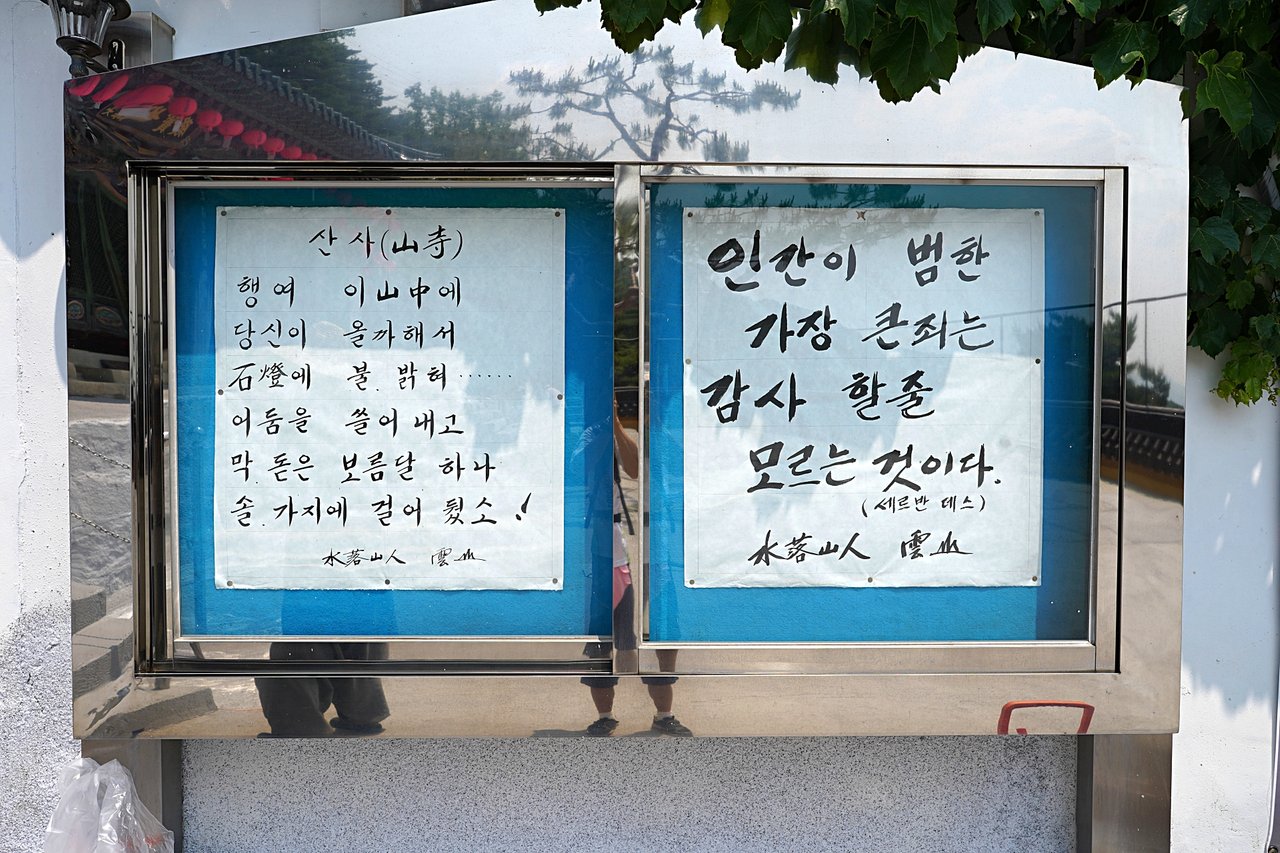 산사(山寺)
행여 이山中에
당신이 올까해서
石燈에 불.밝혀……
어둠을 쓸어내고
막.돋은 보름달 하나
솔.가지에 걸어 뒀소!
水落山人 雲山
인간이 범한
가장 큰죄는
감사 할줄
모르는 것이다.
(세르반 데스)
水落山人 雲山